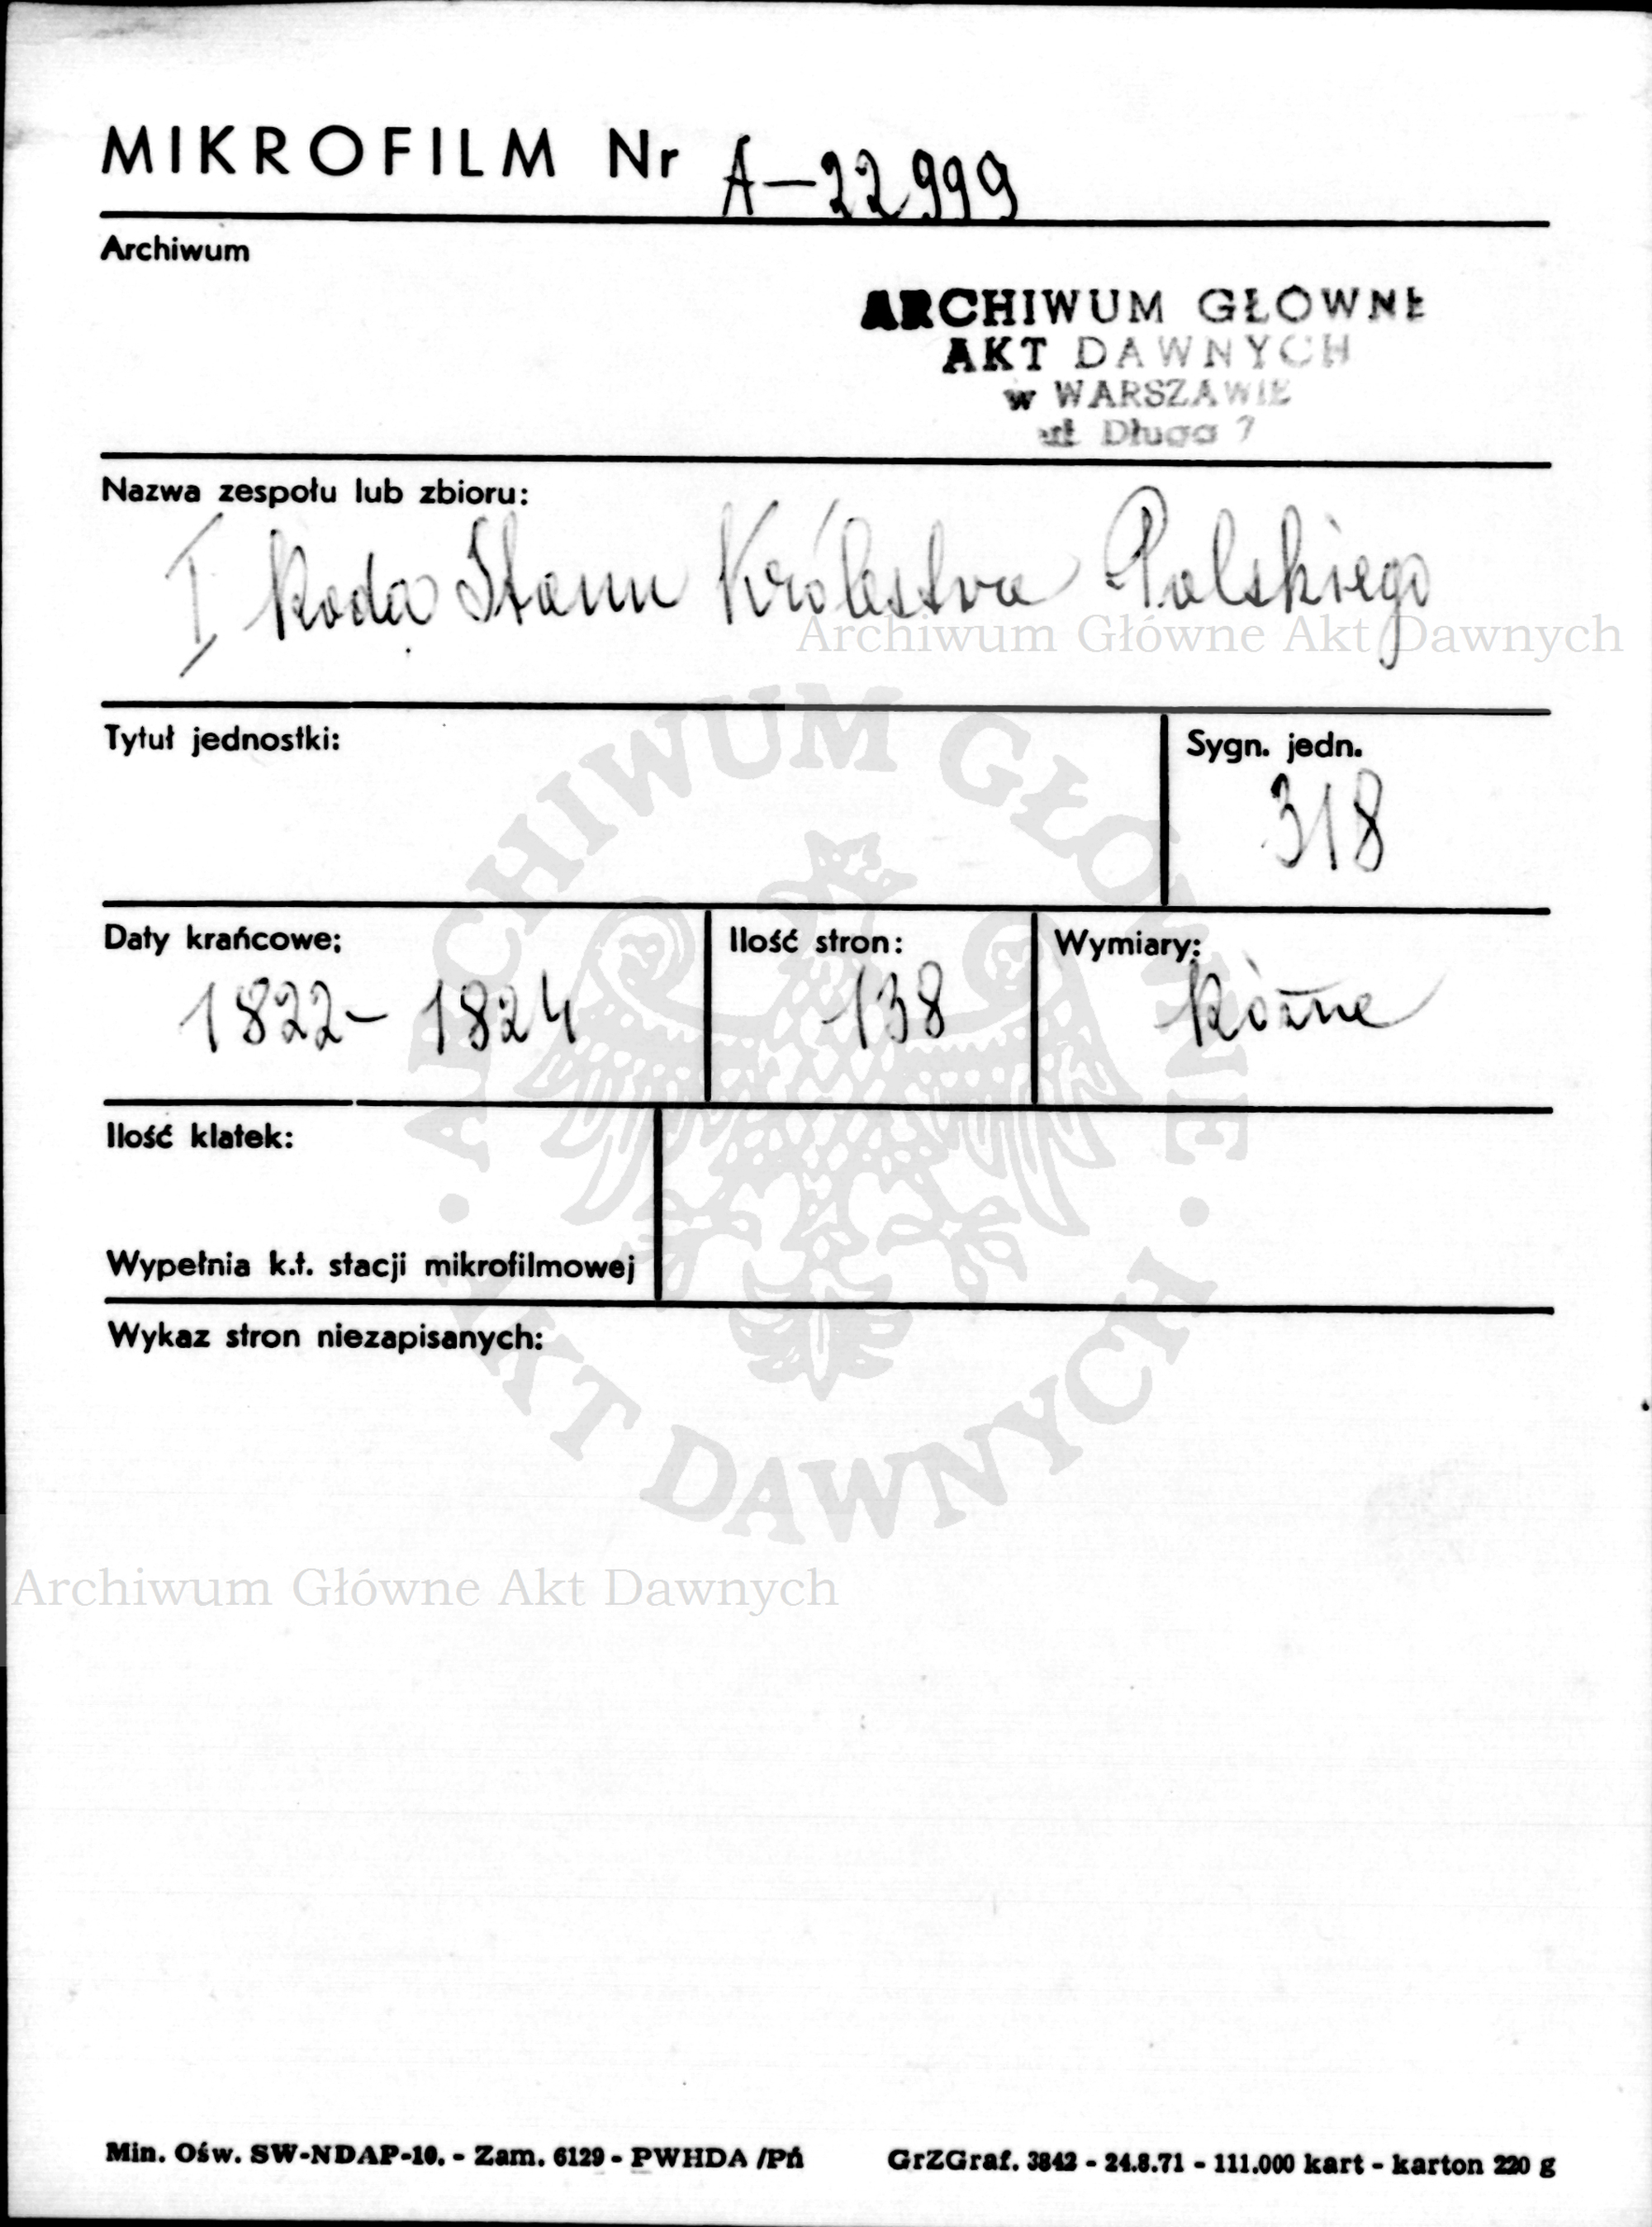 MIKROFILM Nr A-22999
Archiwum
ARCHIWUM GŁÓWNE
AKT DAWNYCH
w WARSZAWIE
ul. Długa 7
Nazwa zespołu lub zbioru:
I Rada Stanu Królestwa Polskiego
Archiwum Główne Akt Dawnych
Tytuł jednostki:
Sygn. jedn.
318
Daty krańcowe:
1822-1824
Ilość stron:
138
Wymiary:
Różne
Ilość klatek:
Wypełnia k.t. stacji mikrofilmowej
Wykaz stron niezapisanych:
ARCHIWUM GŁÓWNE · AKT DAWNYCH ·
Archiwum Główne Akt Dawnych
Min. Ośw. SW-NDAP-10. - Zam. 6129 - PWHDA /Pń GrZGraf. 3842 - 24.8.71 - 111.000 kart - karton 220 g